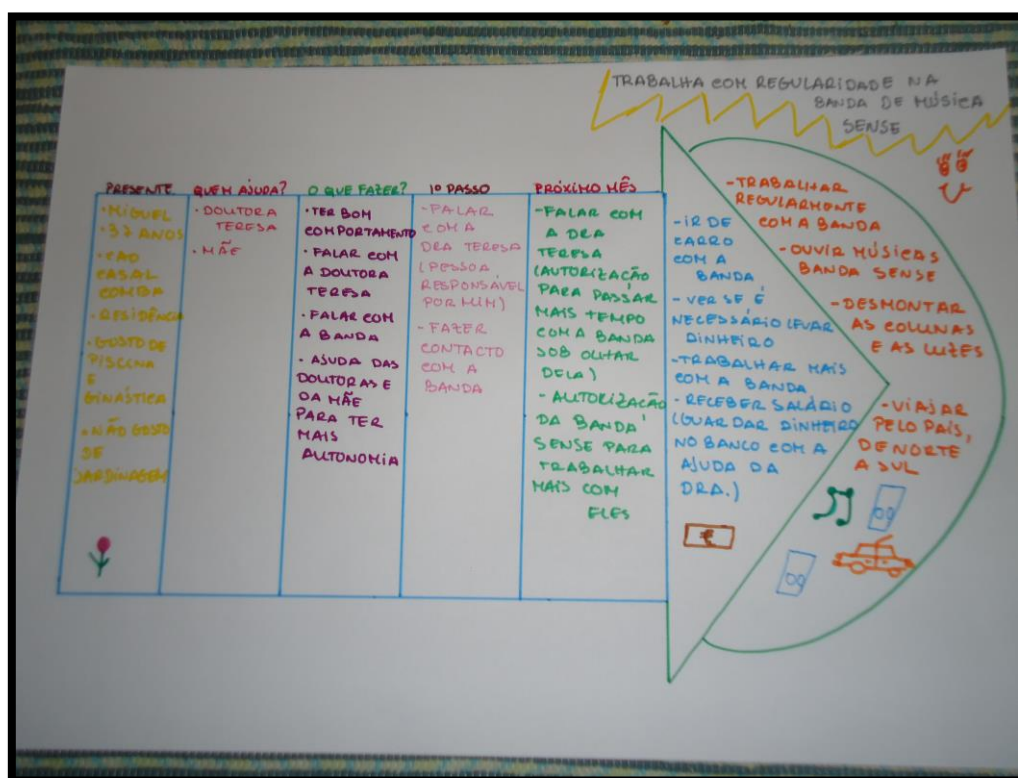 TRABALHA COM REGULARIDADE NA
BANDA DE MÚSICA
SENSE
PRESENTE
• MIGUEL
• 37 ANOS
• CAO
CASAL
COMBA
• RESIDÊNCIA
• GOSTO DE
PISCINA
E
GINÁSTICA
• NÃO GOSTO
SE
JARDINAGEM
QUEM AJUDA?
• DOUTORA
TERESA
• MÃE
O QUE FAZER?
• TER BOM
COMPORTAMENTO
• FALAR COM
A DOUTORA
TERESA
• FALAR COM
A BANDA
• AJUDA DAS
DOUTORAS E
DA MÃE
PARA TER
MAIS
AUTONOMIA
1º PASSO
- FALAR
COM A
DRA TERESA
(PESSOA
RESPONSÁVEL
POR MIM)
- FAZER
CONTACTO
COM A
BANDA
PRÓXIMO MÊS
- FALAR COM
A DRA
TERESA
(AUTORIZAÇÃO
PARA PASSAR
MAIS TEMPO
COM A BANDA
SOB OLHAR
DELA)
- AUTORIZAÇÃO
DA BANDA
SENSE PARA
TRABALHAR
MAIS COM
ELES
- IR DE
CARRO
COM A
BANDA
- VER SE É
NECESSÁRIO LEVAR
DINHEIRO
- TRABALHAR MAIS
COM A BANDA
- RECEBER SALÁRIO
(GUARDAR DINHEIRO
NO BANCO COM A
AJUDA DA
DRA.)
€
- TRABALHAR
REGULARMENTE
COM A BANDA
- OUVIR MÚSICAS
BANDA SENSE
- DESMONTAR
AS COLUNAS
E AS LUZES
- VIAJAR
PELO PAÍS,
DE NORTE
A SUL